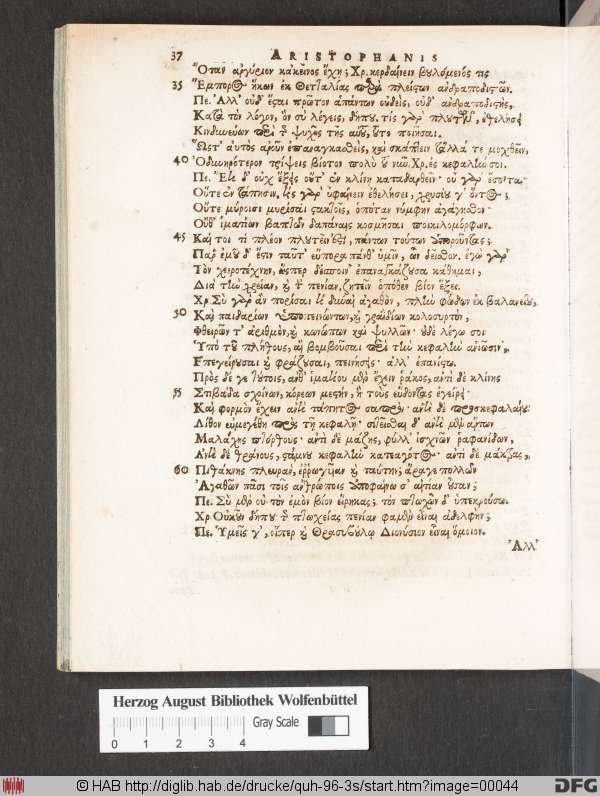 37 ARISTOPHANIS
Ὅταν ἀργύριον κἀκεῖνος ἔχῃ; Χρ. κερδαίνειν βουλόμενός τις
35 Ἔμπορος ἥκων ἐκ Θετταλίας παρὰ πλείστων ἀνδραποδιστῶν.
Πε. Ἀλλ' οὐδ' ἔσται πρῶτον ἁπάντων οὐδεὶς, οὐδ' ἀνδραποδιστὴς,
Κατὰ τὸν λόγον, ὃν σὺ λέγεις, δήπου, τίς γὰρ πλουτῶν, ἐθελήσει
Κινδυνεύων περὶ τῆς ψυχῆς τῆς αὑτοῦ, τοῦτο ποιῆσαι.
Ὥστ' αὐτὸς ἀροῦν ἐπαναγκασθεὶς, καὶ σκάπτειν τἄλλά τε μοχθεῖν,
40 Ὀδυνηρότερον τρίψεις βίοτον πολὺ τοῦ νῦν. Χρ. ἐς κεφαλὴν σοι.
Πε. Ἔτι δ' οὐχ ἕξεις οὔτ' ἐν κλίνῃ καταδαρθεῖν· οὐ γὰρ ἔσονται·
Οὔτε ἐν τάπησιν. τίς γὰρ ὑφαίνειν ἐθελήσει, χρυσίου γ' ὄντος;
Οὔτε μύροισι μυρίσαι στακτοῖς, ὁπόταν νύμφην ἀγάγησθον·
Οὔθ' ἱματίων βαπτῶν δαπάναις κοσμῆσαι ποικιλομόρφων.
45 Καί τοι τί πλέον πλουτεῖν ἐστι, πάντων τούτων ἀποροῦντας;
Παρ' ἐμοῦ δ' ἔστιν ταῦτ' εὔπορα πάνθ' ὑμῖν, ὧν δεῖσθον. ἐγὼ γὰρ
Τὸν χειροτέχνην, ὥσπερ δέσποιν' ἐπαναγκάζουσα κάθημαι,
Διὰ τὴν χρείαν, καὶ τὴν πενίαν, ζητεῖν ὁπόθεν βίον ἕξει.
Χρ. Σὺ γὰρ ἂν πορίσαι τί δύναι' ἀγαθὸν, πλὴν φώδων ἐκ βαλανείου,
50 Καὶ παιδαρίων ὑποπεινώντων, καὶ γραϊδίων κολοσυρτὸν,
Φθειρῶν τ' ἀριθμὸν, καὶ κωνώπων καὶ ψυλλῶν· οὐδὲ λέγω σοι
Ὑπὸ τοῦ πλήθους, αἳ βομβοῦσαι περὶ τὴν κεφαλὴν ἀνιῶσιν,
Ἐπεγείρουσαι καὶ φράζουσαι, πεινήσεις· ἀλλ' ἐπανίστω.
Πρὸς δέ γε τούτοις, ἀνθ' ἱματίου μὲν ἔχειν ῥάκος, ἀντὶ δὲ κλίνης
55 Στιβάδα σχοίνων, κόρεων μεστὴν, ἣ τοὺς εὕδοντας ἐγείρει·
Καὶ φορμὸν ἔχειν ἀντὶ τάπητος σαπρόν· ἀντὶ δὲ προσκεφαλαίου
Λίθον εὐμεγέθη πρὸς τῇ κεφαλῇ· σιτεῖσθαι δ' ἀντὶ μὲν ἄρτων
Μαλάχης πτόρθους· ἀντὶ δὲ μάζης, φύλλ' ἰσχνῶν ῥαφανίδων,
Ἀντὶ δὲ θράνους, στάμνου κεφαλὴν κατεαγότος· ἀντὶ δὲ μάκτρας,
60 Πιθάκνης πλευρὰν, ἐρρωγυῖαν καὶ ταύτην; ἆράγε πολλῶν
Ἀγαθῶν πᾶσι τοῖς ἀνθρώποις ἀποφαίνω σ' αἴτιαν οὖσαν;
Πε. Σὺ μὲν οὐ τὸν ἐμὸν βίον εἴρηκας; τὸν πτωχῶν δ' ὑπεκρούσω.
Χρ. Οὐκοῦν δήπου τῆς πτωχείας πενίαν φαμὲν εἶναι ἀδελφήν;
Πε. Ὑμεῖς γ', οἵπερ καὶ Θρασυβούλῳ Διονύσιον εἶναι ὅμοιον.
Ἀλλ'
Herzog August Bibliothek Wolfenbüttel
Gray Scale
0 1 2 3 4
© HAB http://diglib.hab.de/drucke/quh-96-3s/start.htm?image=00044
DFG